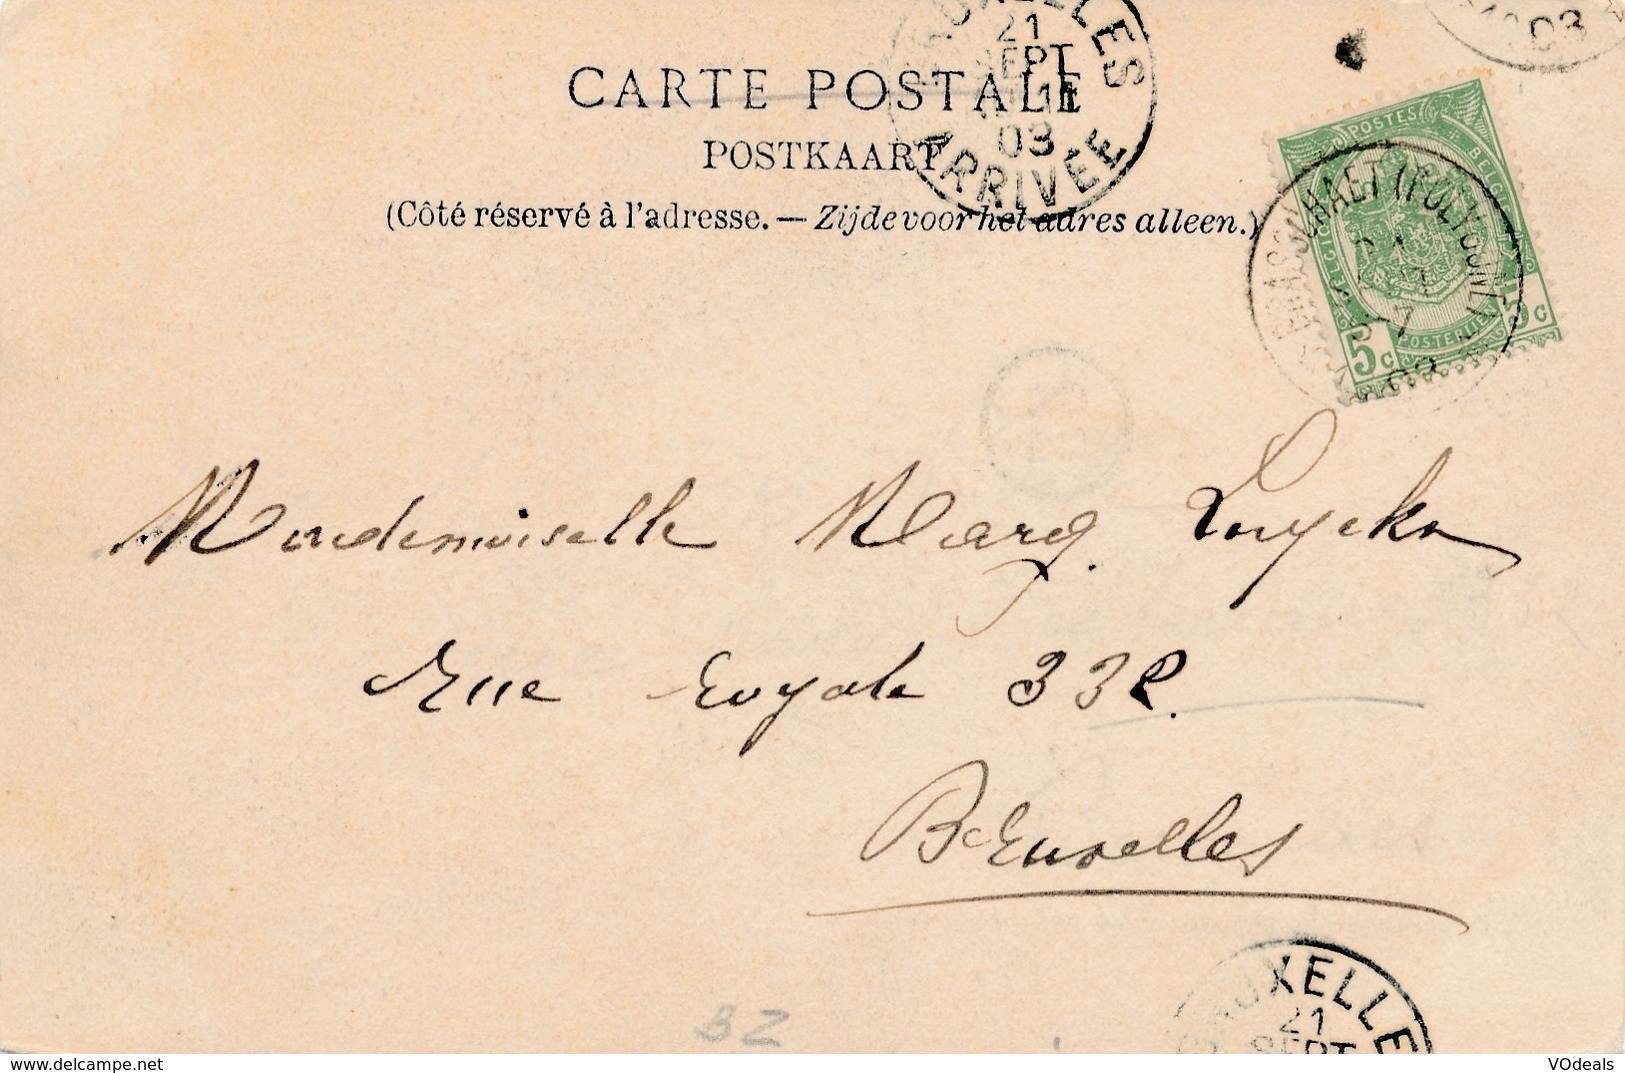 CARTE POSTALE
POSTKAART
(Côté réservé à l'adresse. — Zijde voor het adres alleen.)
BRUXELLES
21
SEPT
11
03
ARRIVÉE
1903
POSTES
BELGIQUE
BELGIË
POSTERIJEN
5c
5c
BRASSCHAET (POLYGONE)
21
SEPT
7
03
Mademoiselle Marg. Luyckx
Rue Royale 332.
Bruxelles
BRUXELLES
21
SEPT
BZ
www.delcampe.net
VOdeals